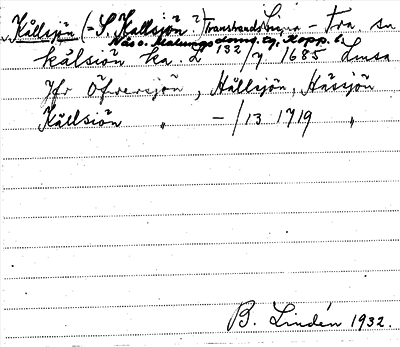 Kållsjön (= S. Kallsjön?) Transtrands
Näs o. Malungs tg. Kopp. l.
kälsiön ka. 2 132/7 1685 Lmsa
Jfr Öfversjön, Hållsjön, Håsjön
Källsiön " - /13 1719 "
B. Lindén 1932.